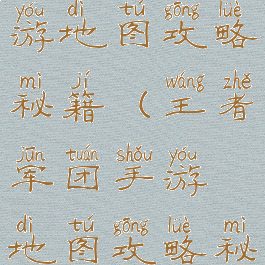 yóu dì tú gōng lüè
游地图攻略
mì jí wáng zhě
秘籍（王者
jūn tuán shǒu yóu
军团手游
dì tú gōng lüè mì
地图攻略秘